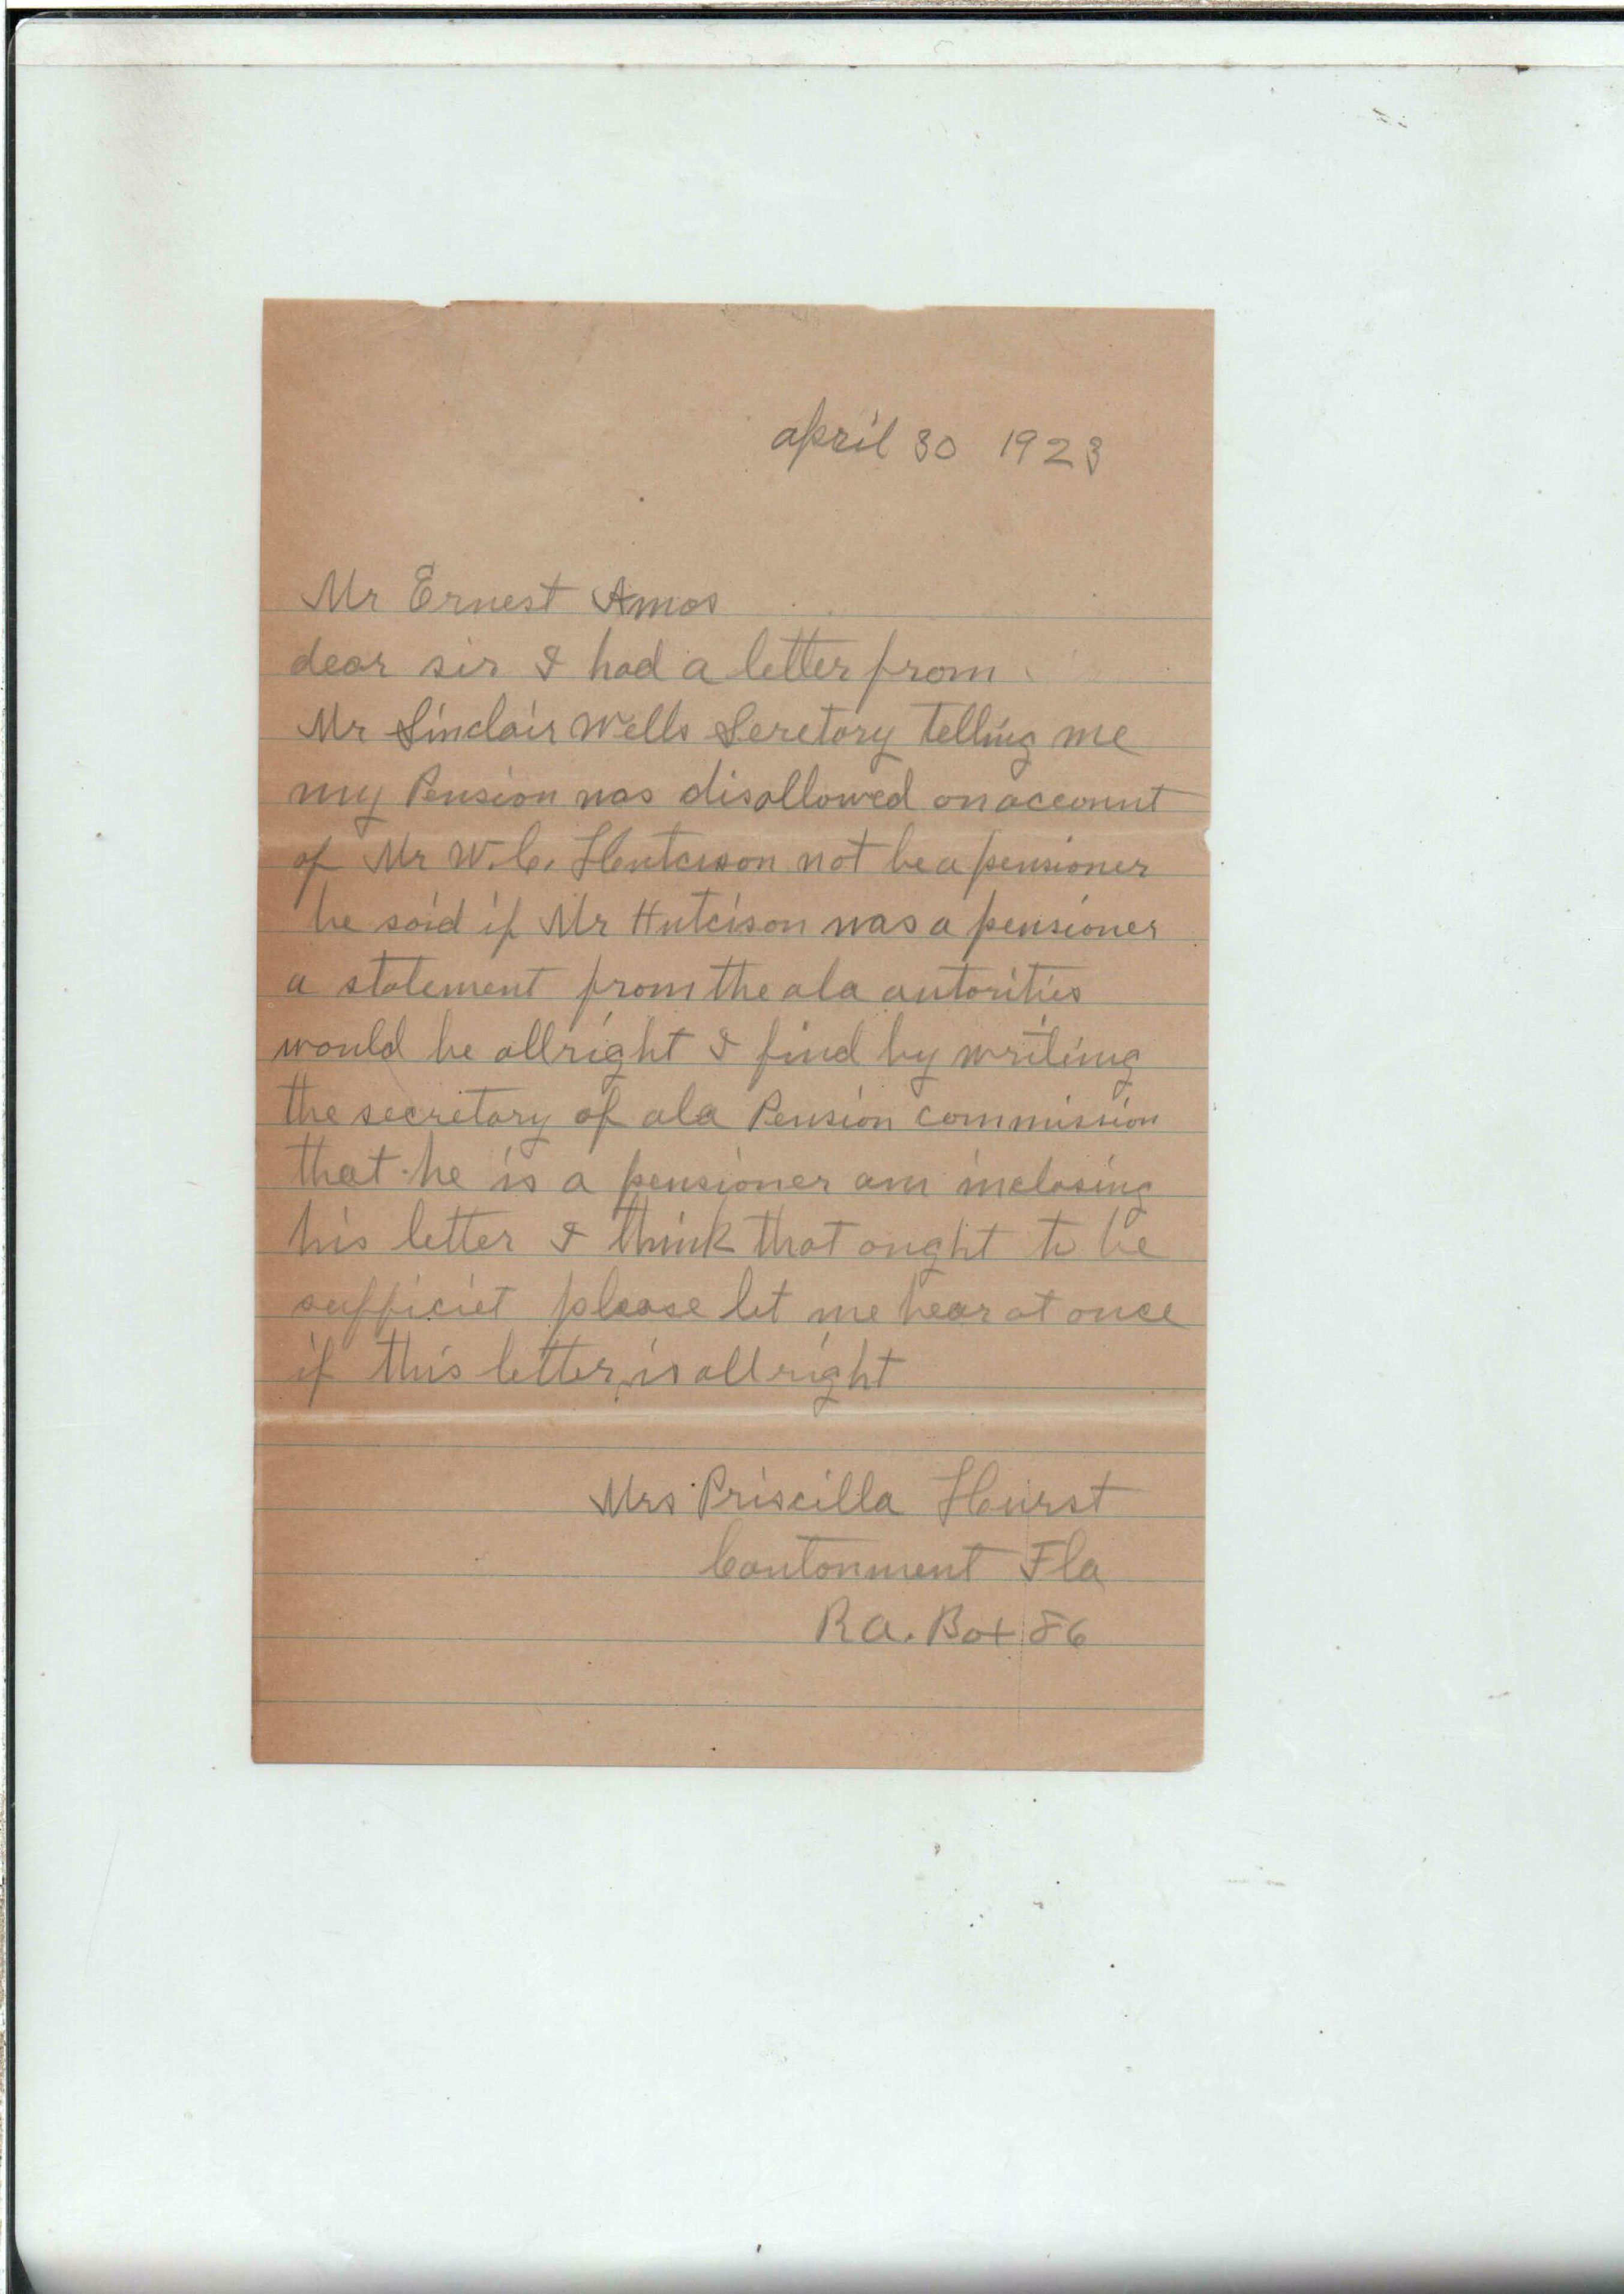 april 30 1923
Mr Ernest Amos
dear sir I had a letter from
Mr Sinclair Wells Seretory telling me
my Pension was disallowed on account
of Mr W.C. Hutcison not be a pensioner
he said if Mr Hutcison was a pensioner
a statement from the ala autorities
would be allright I find by writing
the secretary of ala Pension commission
that he is a pensioner am inclosing
his letter I think that ought to be
sufficiet please let me hear at once
if this letter is allright
Mrs Priscilla Hurst
Cantonment Fla
Ra. Box 86